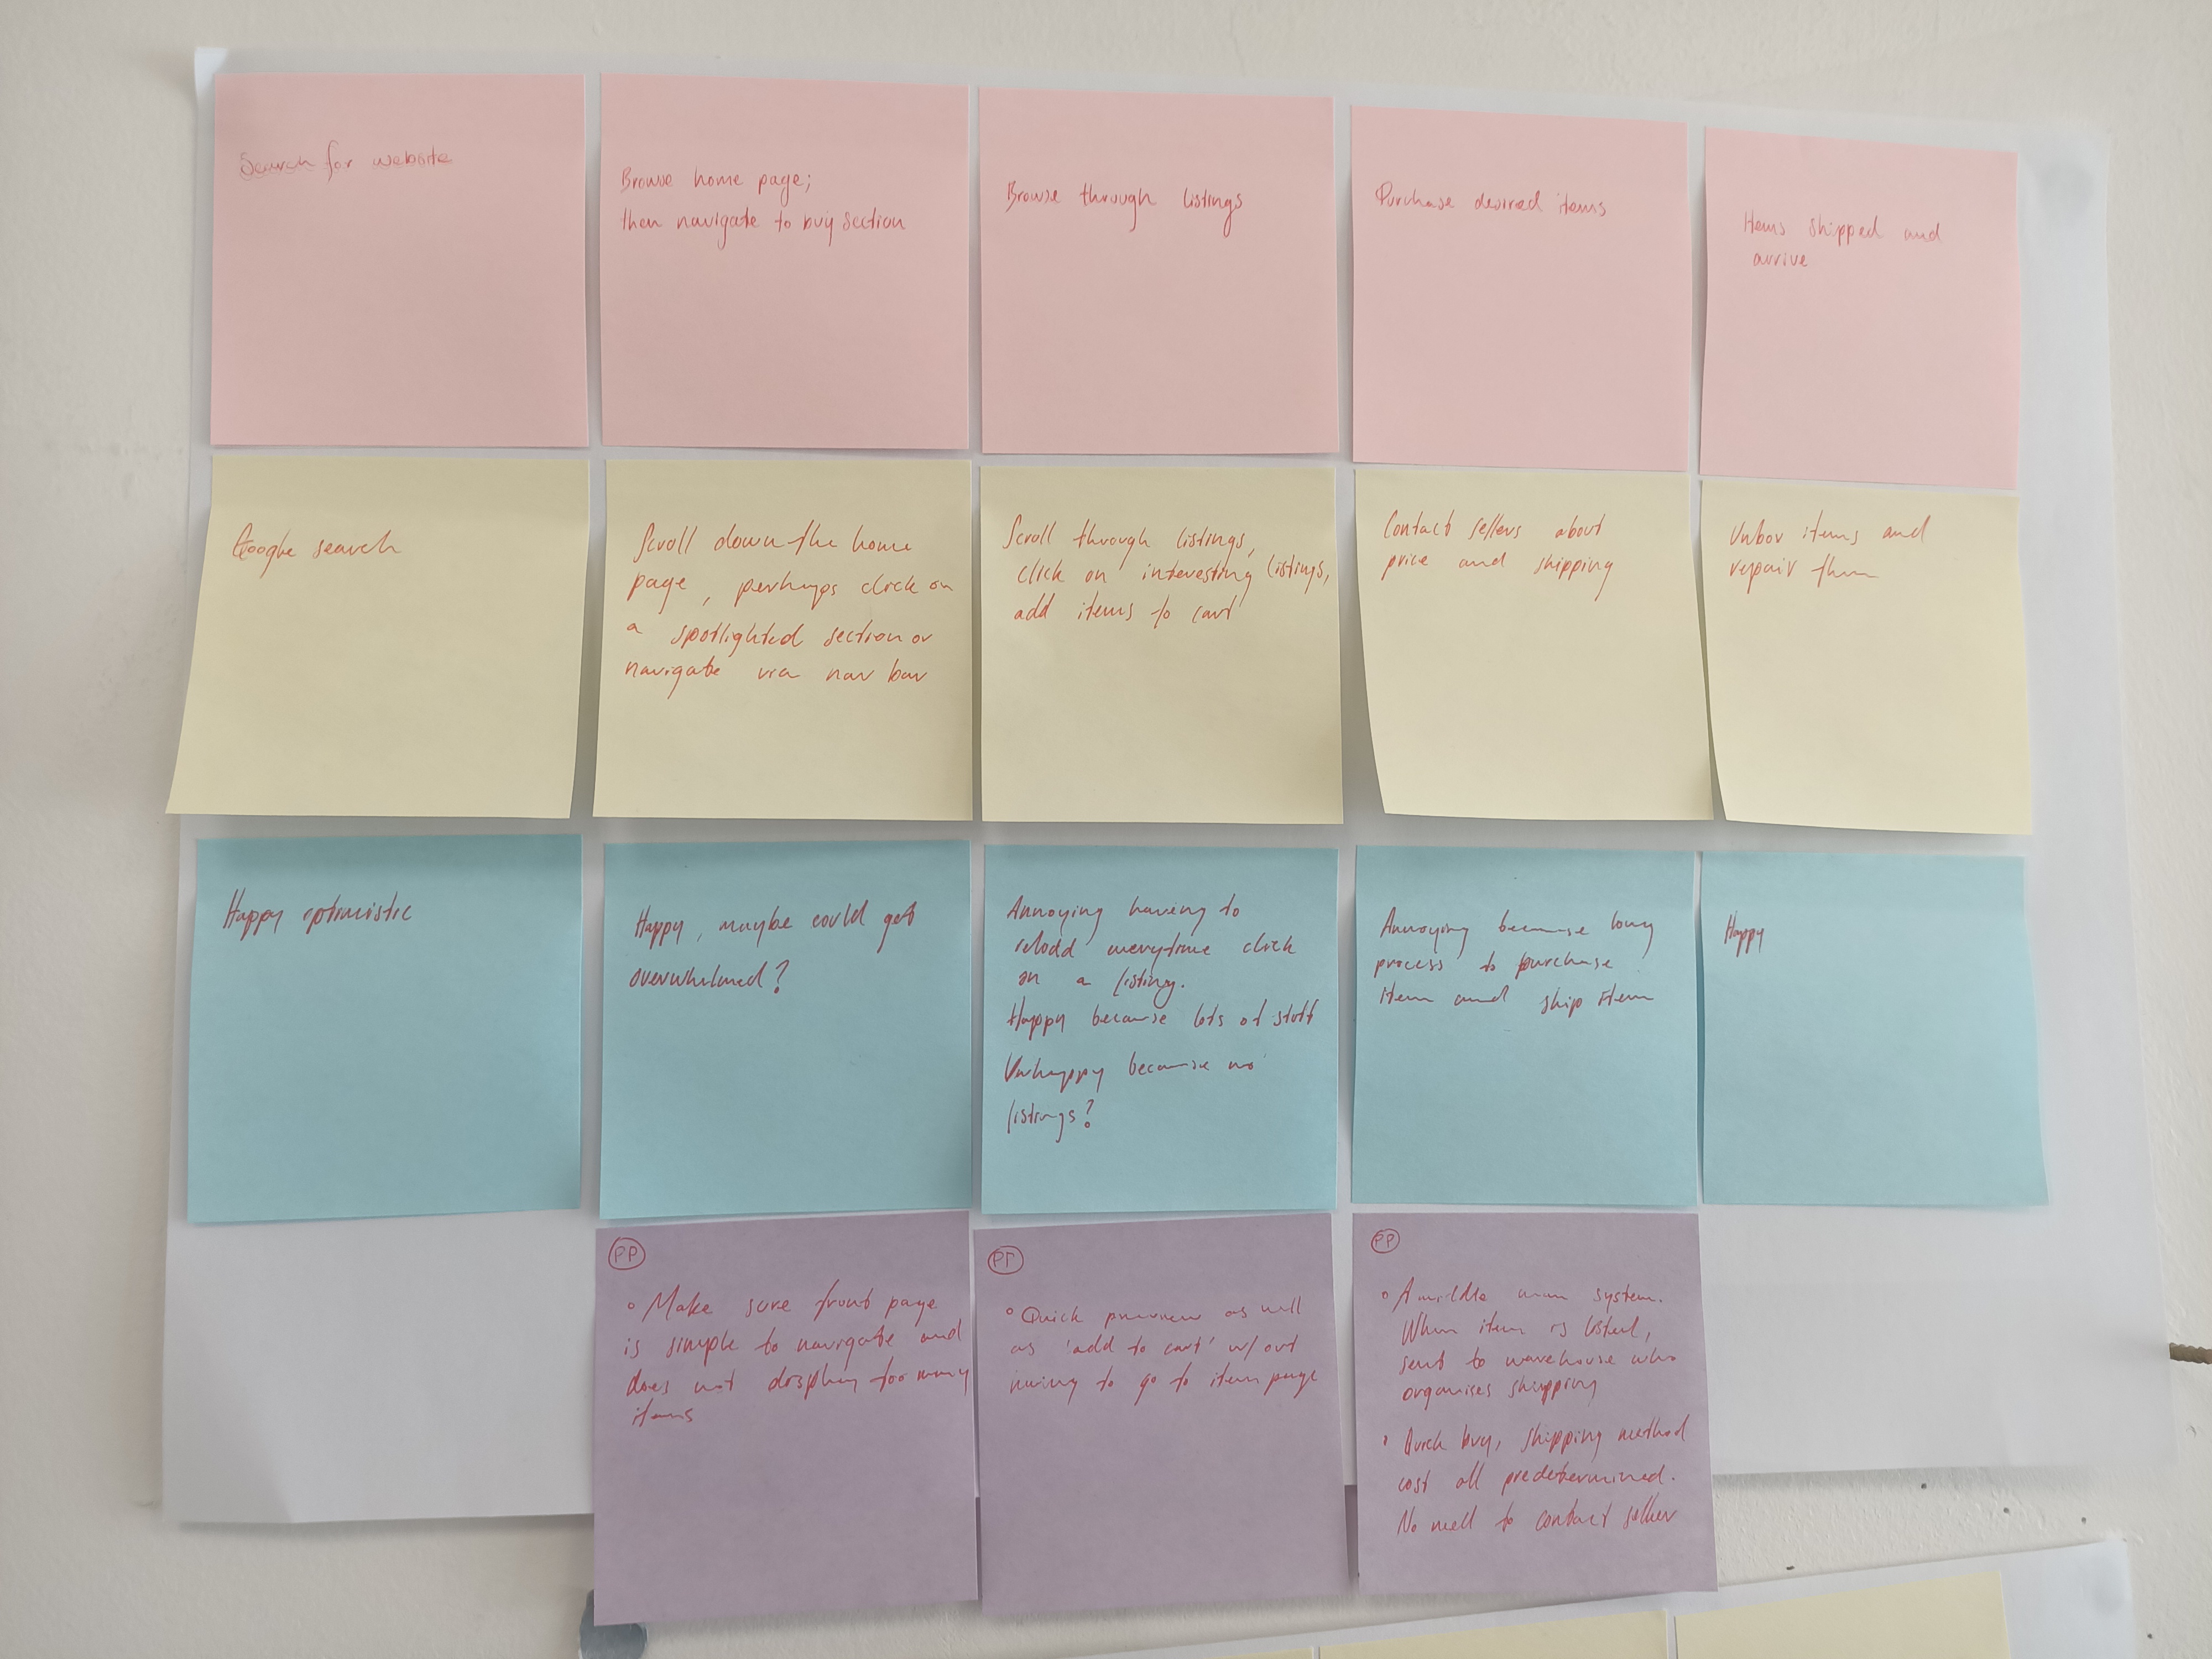 Search for website
Browse home page;
then navigate to buy section
Browse through listings
Purchase desired items
Items shipped and
arrive
Google search
Scroll down the home
page, perhaps click on
a spotlighted section or
navigate via nav bar
Scroll through listings,
click on interesting listings,
add items to cart
Contact sellers about
price and shipping
Unbox items and
repair them
Happy optimistic
Happy, maybe could get
overwhelmed?
Annoying having to
reload everytime click
on a listing.
Happy because lots of stuff
Unhappy because no
listings?
Annoying because long
process to purchase
item and ship item
Happy
PP
• Make sure front page
is simple to navigate and
does not display too many
items
PP
• Quick preview as well
as 'add to cart' w/out
having to go to item page
PP
• A middle man system.
When item is listed,
sent to warehouse who
organises shipping
• Quick buy, shipping method
cost all predetermined.
No need to contact seller